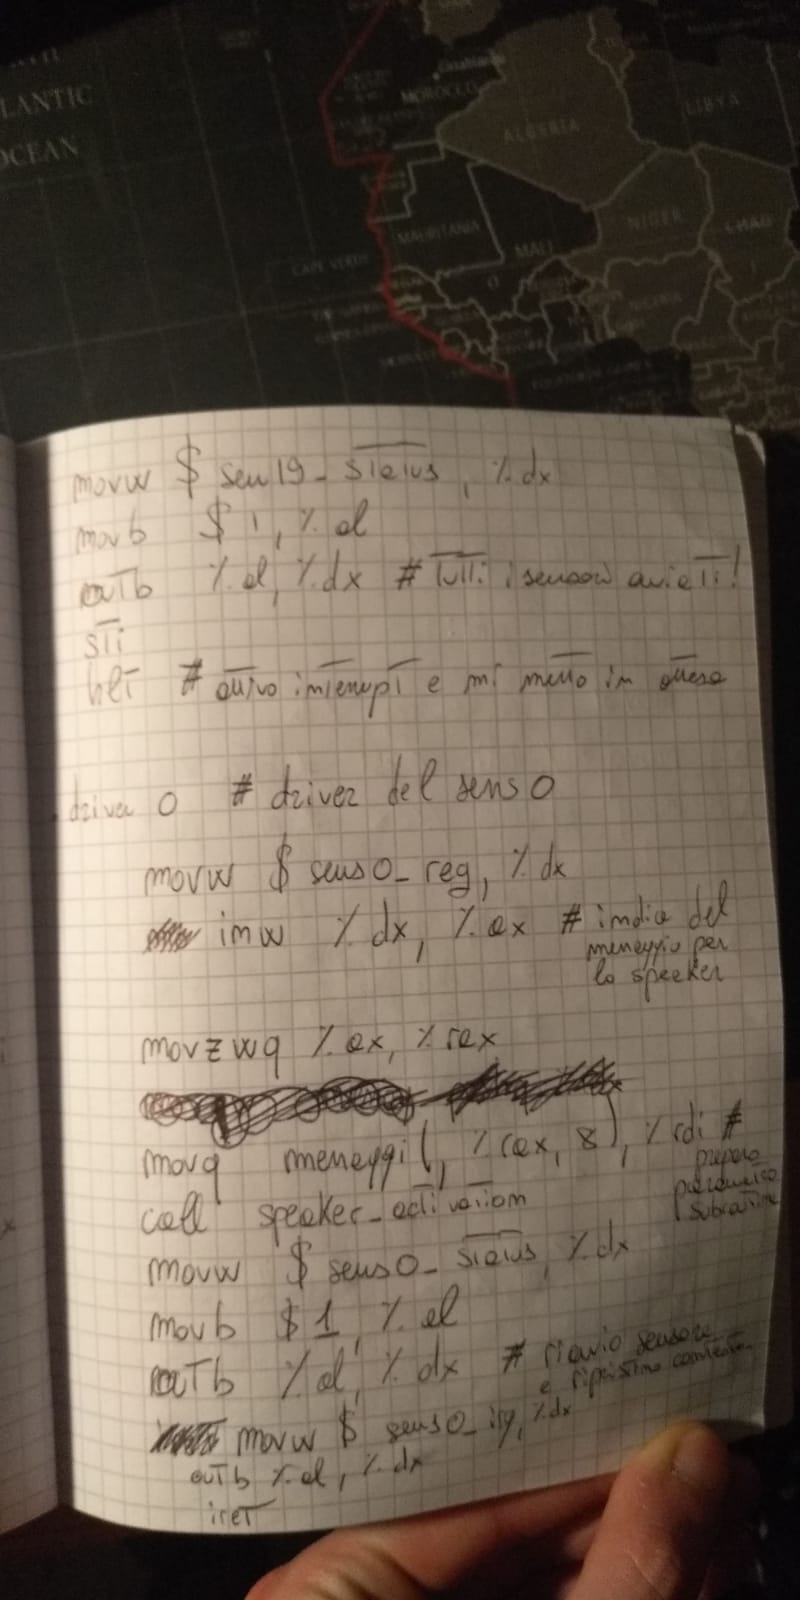 LANTIC
OCEAN
Casablanca
MOROCCO
ALGERIA
LIBYA
MAURITANIA
MALI
NIGER
CHAD
CAPE VERDE
NIGERIA
movw $ sens19_status, %dx
movb $1, %al
outb %al, %dx # Tutti i sensori avviati!
sti
hlt # attivo interrupt e mi metto in attesa
driver 0 # driver del sens 0
movw $ sens0_reg, %dx
inw %dx, %ax # indice del
messaggio per
lo speaker
movzwq %ax, %rax
movq messaggi(, %rax, 8), %rdi #
preparo
parametro
subroutine
call speaker_activation
movw $ sens0_status, %dx
movb $1, %al
outb %al, %dx # riavvio sensore
e ripristino contesto
movw $ sens0_irq, %dx
outb %al, %dx
iret